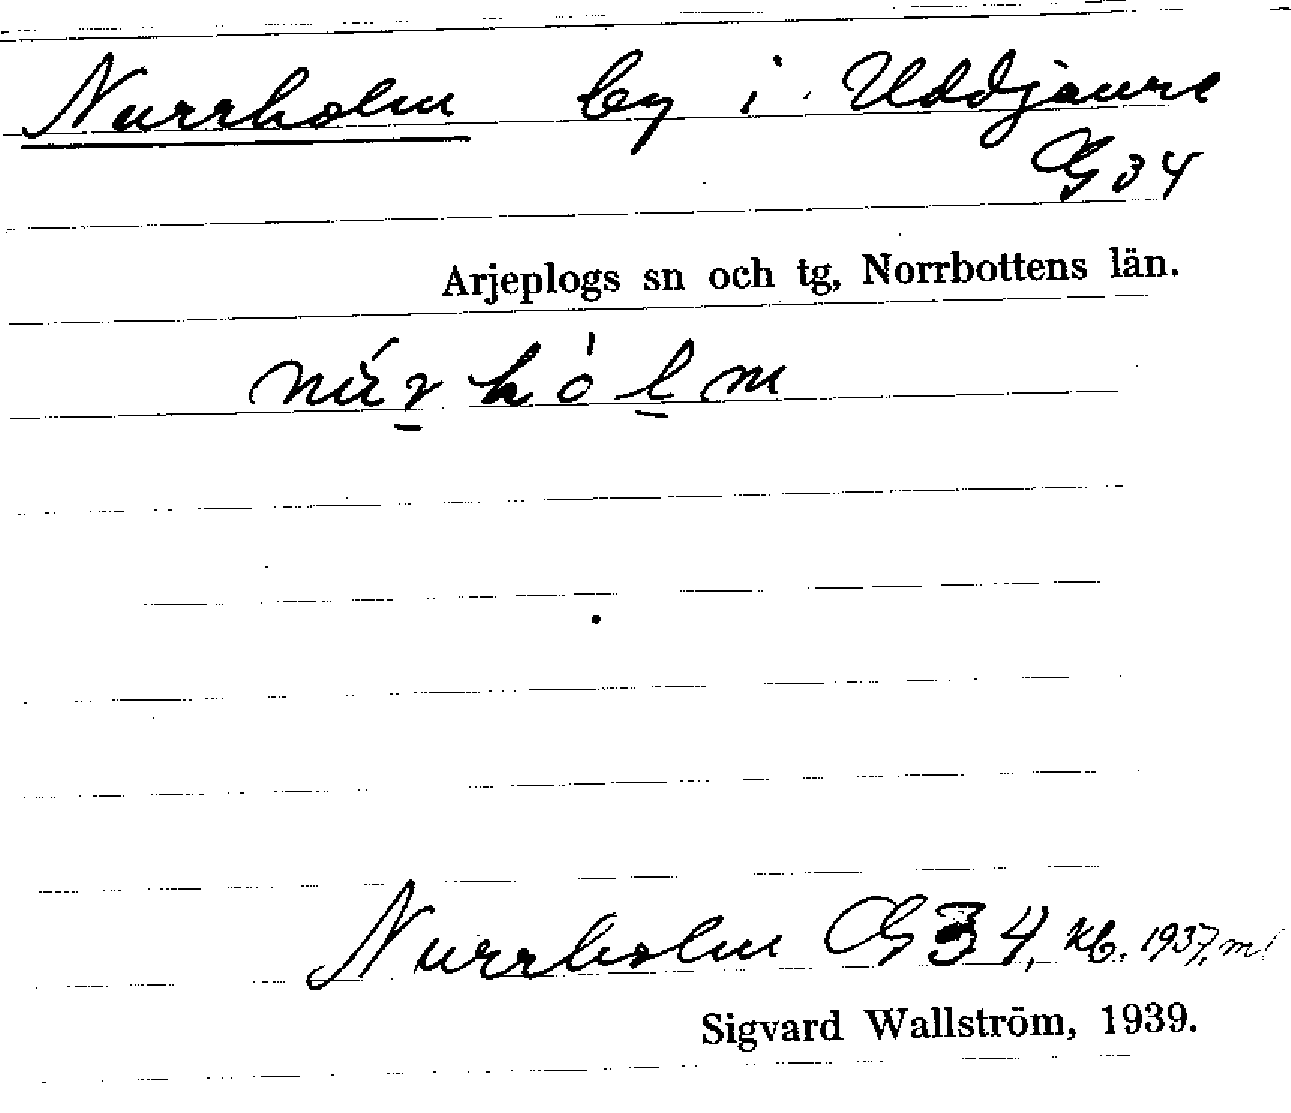 Nurrholm by i Uddjaure
G 34
Arjeplogs sn och tg, Norrbottens län.
núr hòlm
Nurrholm G34, Kb. 1937, m!
Sigvard Wallström, 1939.